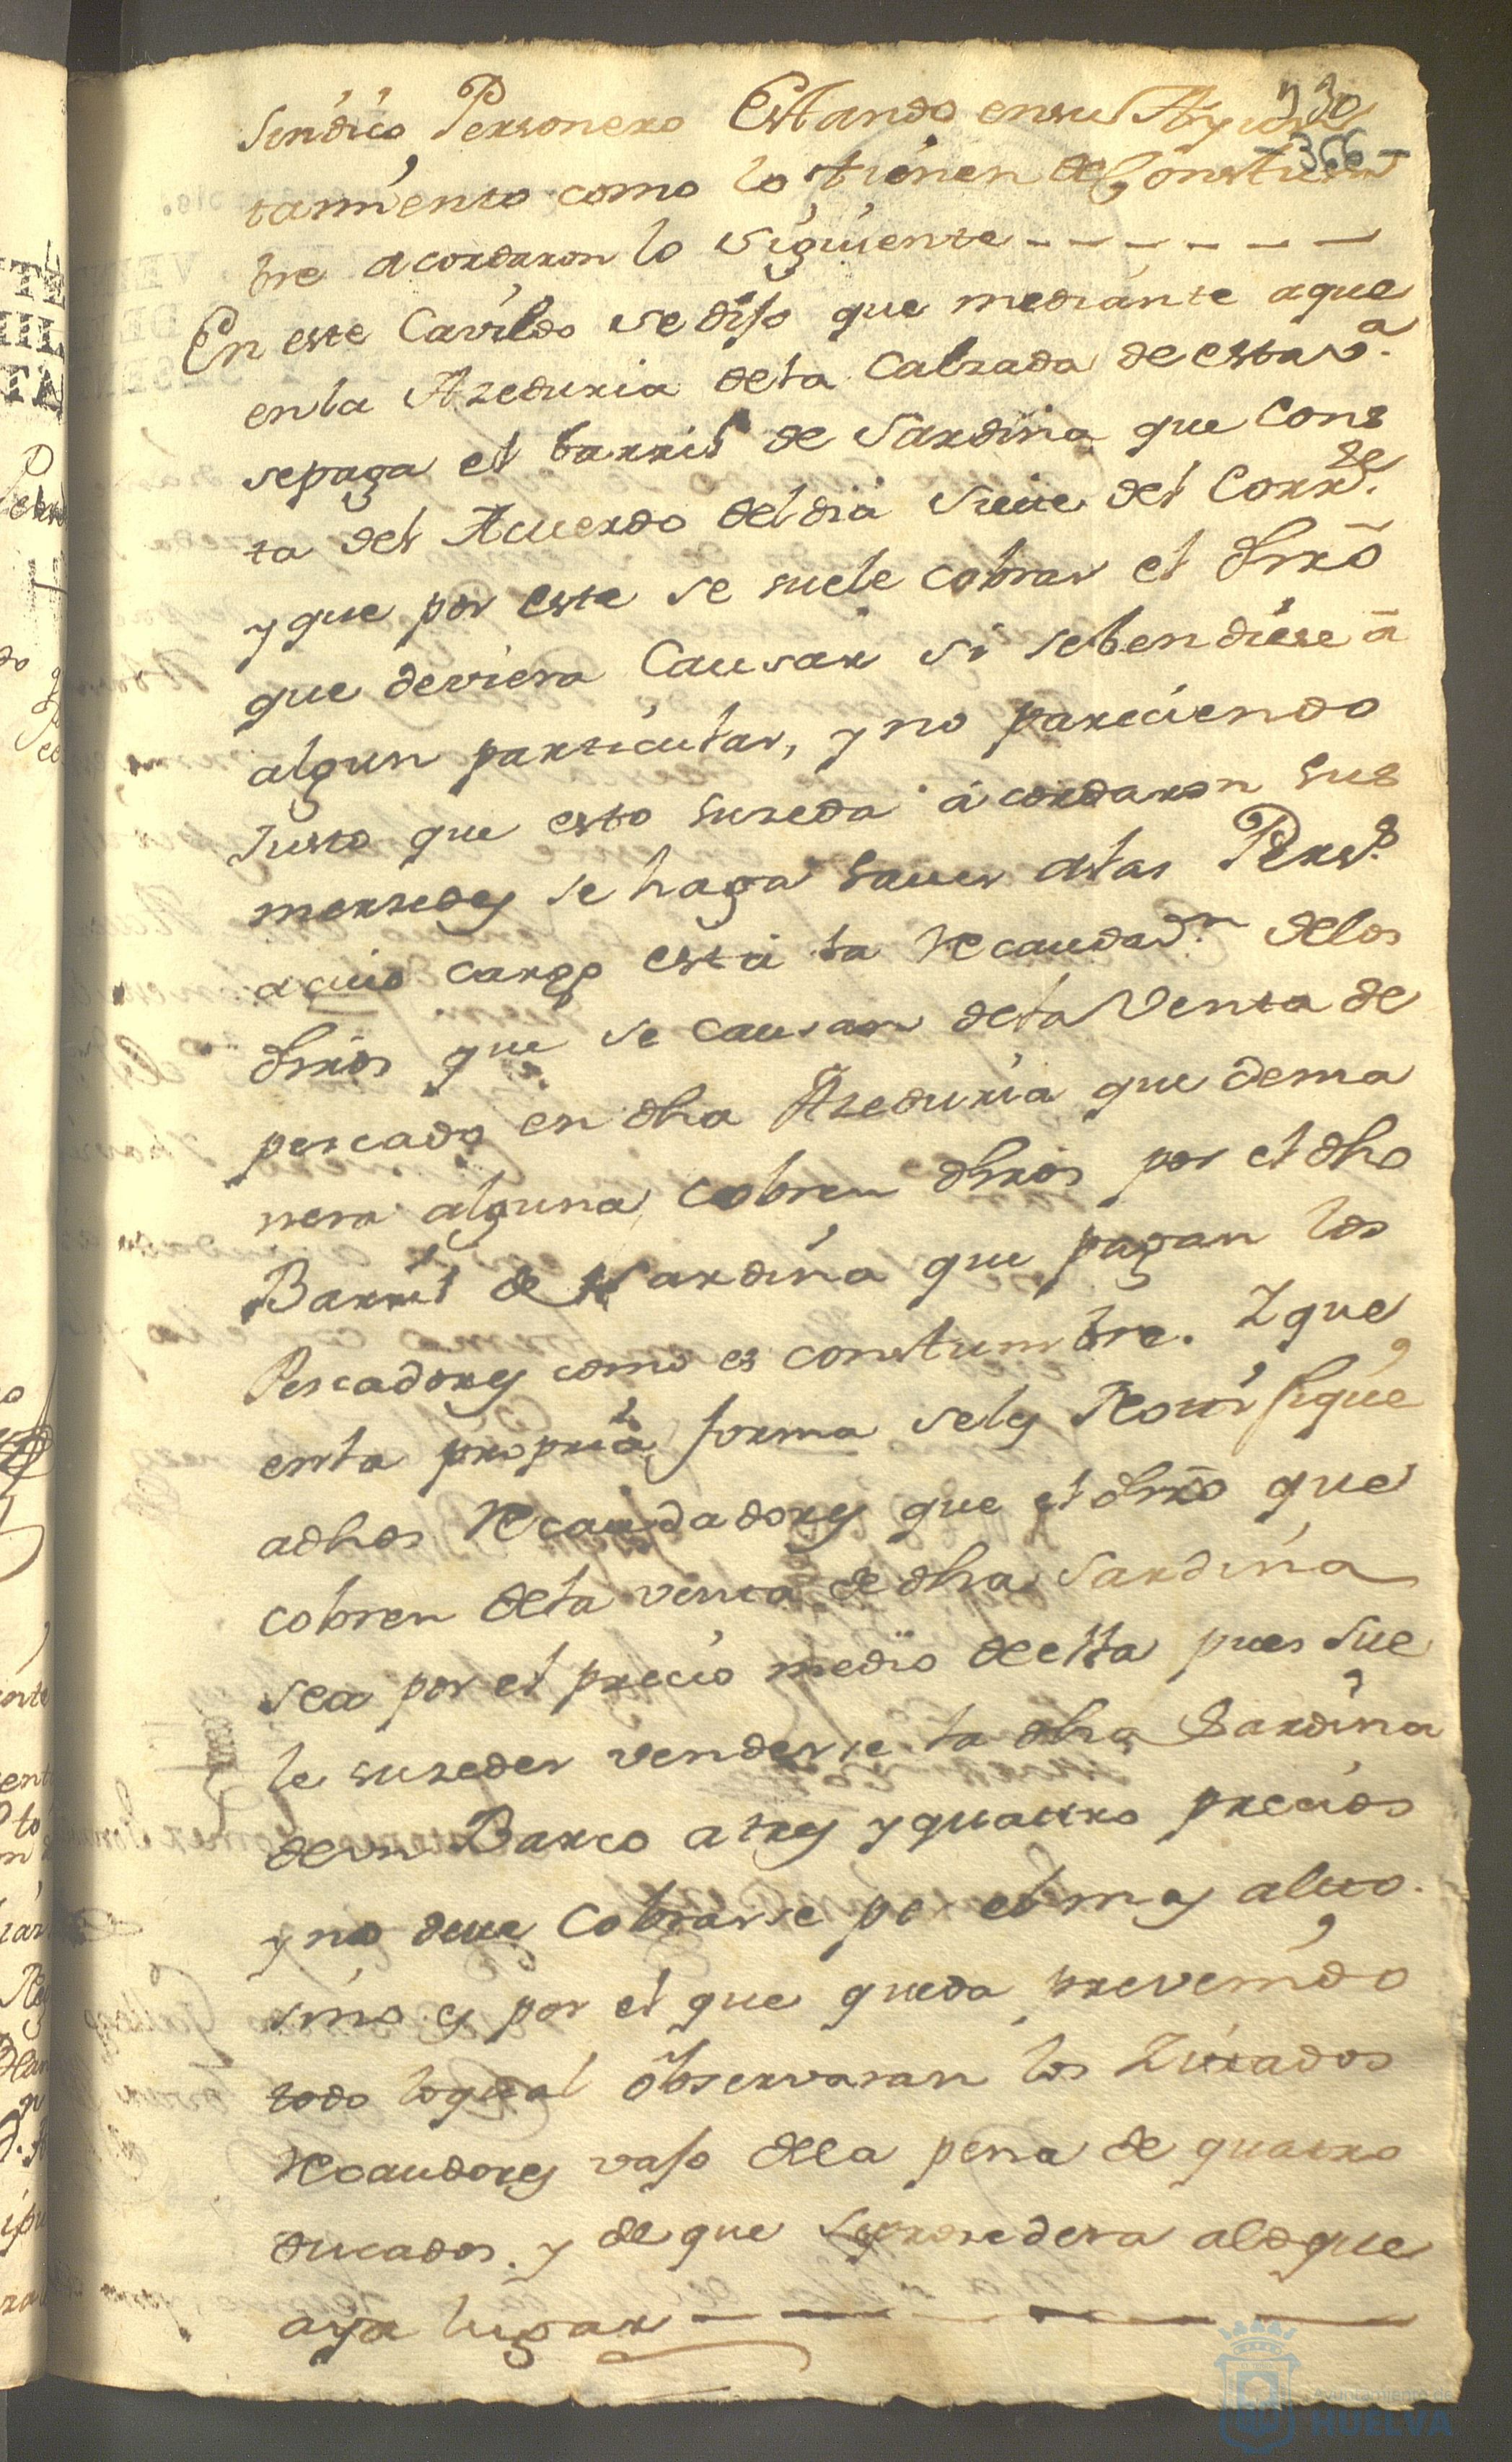 330
366
Sindico Personero Estando en su Ayun
tamiento como lo tienen de Constum
bre acordaron lo siguiente
En este Cavildo se dijo que mediante aque
en la Azeduria de la Calzada de esta v.ª
se paga el barril de Sardina que Cons
ta del Acuerdo del dia sieue del Corr.te
y que por este se suele cobrar el dhrõ
que deviera Causar si se bendiese â
algun particular, y no pareciendo
Justo que esto suzeda acordaron sus
merzedes se haga sauer a las Pers.s
a cuio cargo està la Recaudaz.n de los
dhrõs que se causan de la Venta de
pescado en dha Azeduria que de ma
nera alguna cobren dhrõs por el dho
Barril de Sardina que pagan los
Pescadores como es constumbre. Y que
en la propria forma se les Notifique
a dhos Recaudadores que el dhrõ que
cobren de la venta de dha Sardina
sea por el precio medio de ella pues sue
le suzeder venderse la dha Sardina
de un Barco a tres y quattro precios
y no deue Cobrarse por el mas altto.
sino es por el que queda prevenido
todo lo qual observaran los Zitados
Recaudores vajo de la pena de quatro
ducados. y de que se prosedera a lo que
aya lugar
Ayuntamiento de
HUELVA